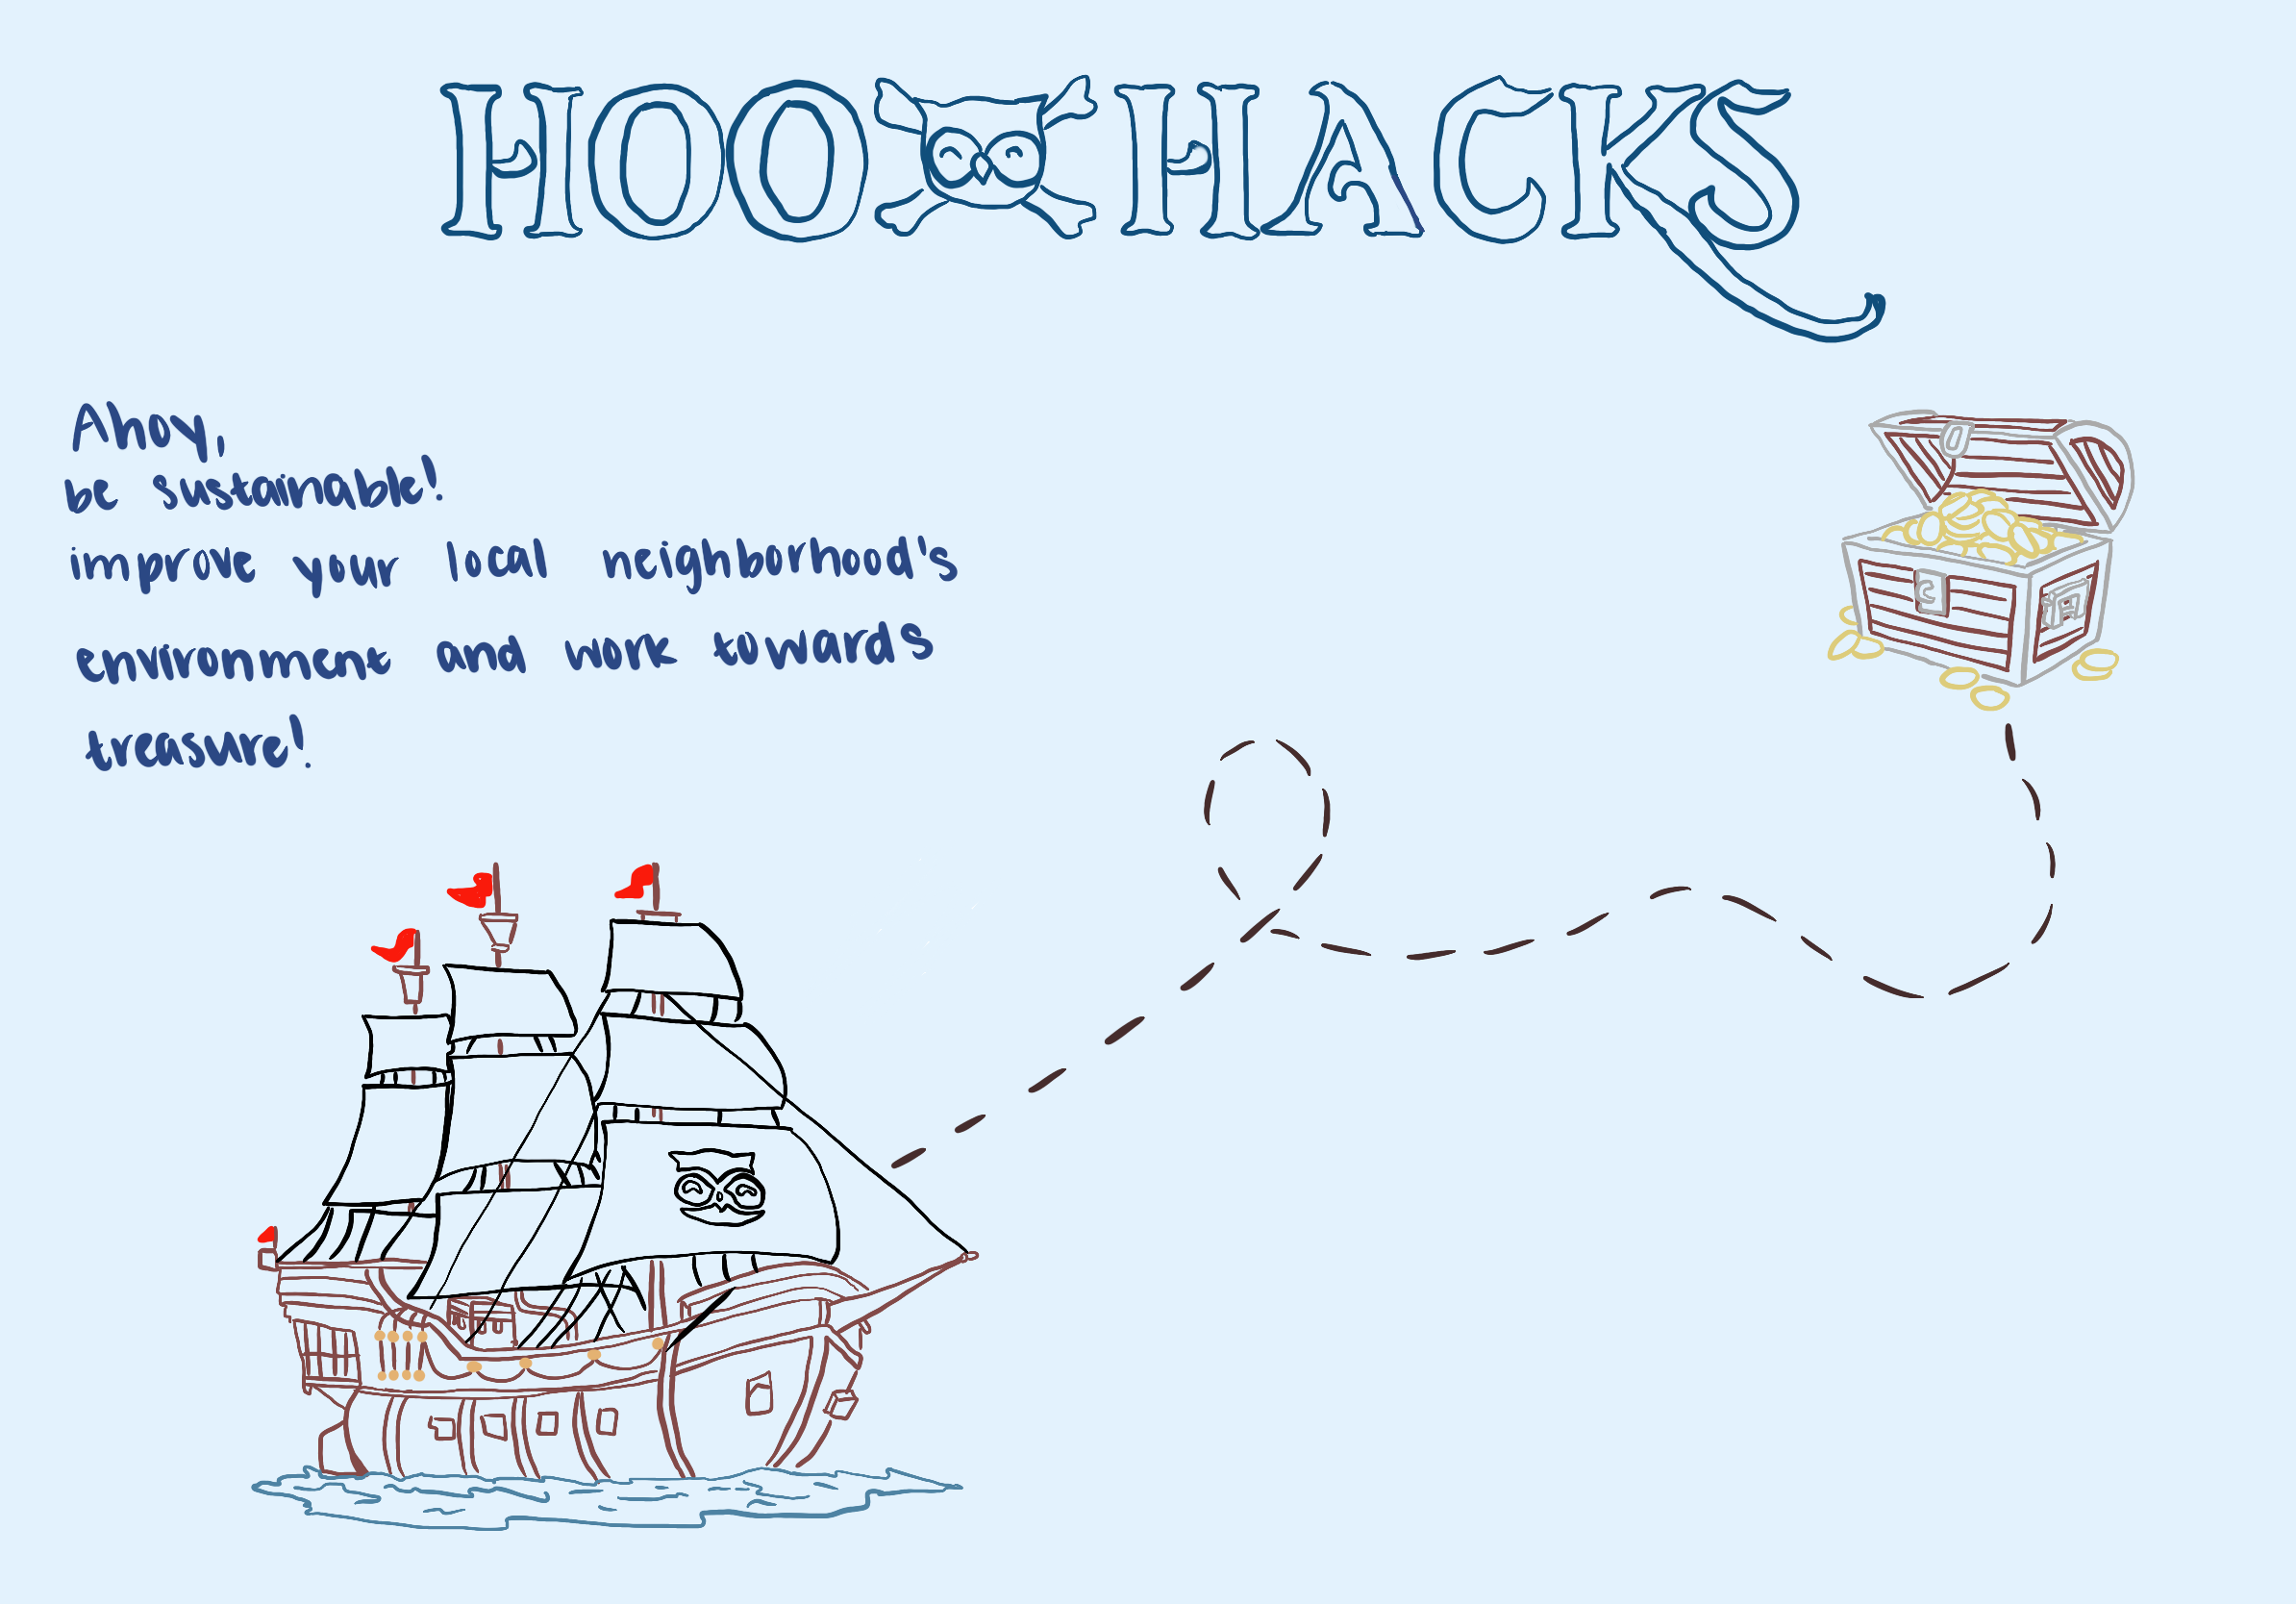 HOO HACKS
Ahoy,
be sustainable!
improve your local neighborhood's
environment and work towards
treasure!